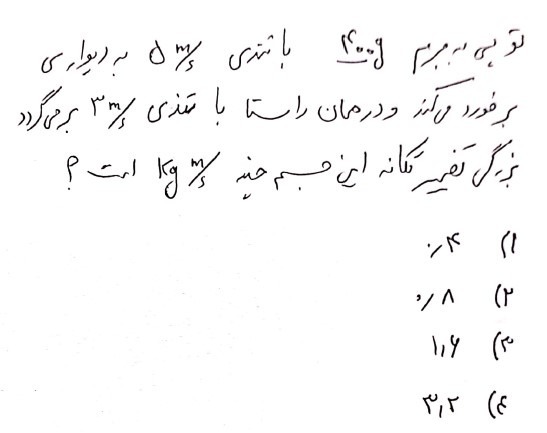 توپی به جرم ۴۰۰g با تندی ۵ m/s به دیواری
برخورد می‌کند و در همان راستا با تندی ۳ m/s برمی‌گردد
بزرگی تغییر تکانه این جسم چند kg m/s است ؟
۱) ۰٫۴
۲) ۰٫۸
۳) ۱٫۶
۴) ۳٫۲